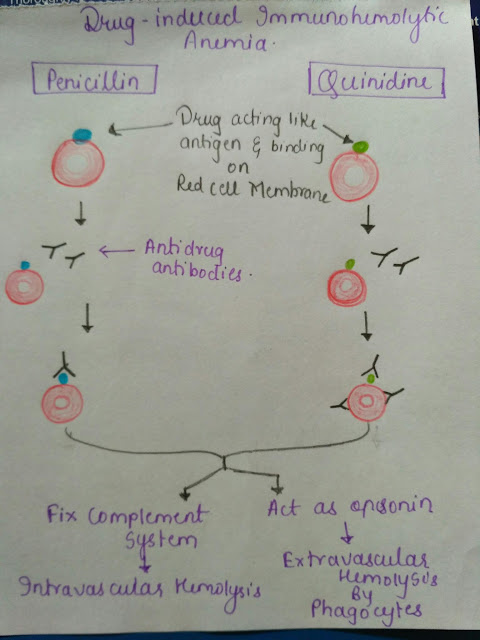 Drug-induced Immunohemolytic
Anemia.
Penicillin
Quinidine
Drug acting like
antigen & binding
on
Red cell Membrane
Antidrug
antibodies.
Fix Complement
System
Intravascular Hemolysis
Act as opsonin
Extravascular
Hemolysis
By
Phagocytes